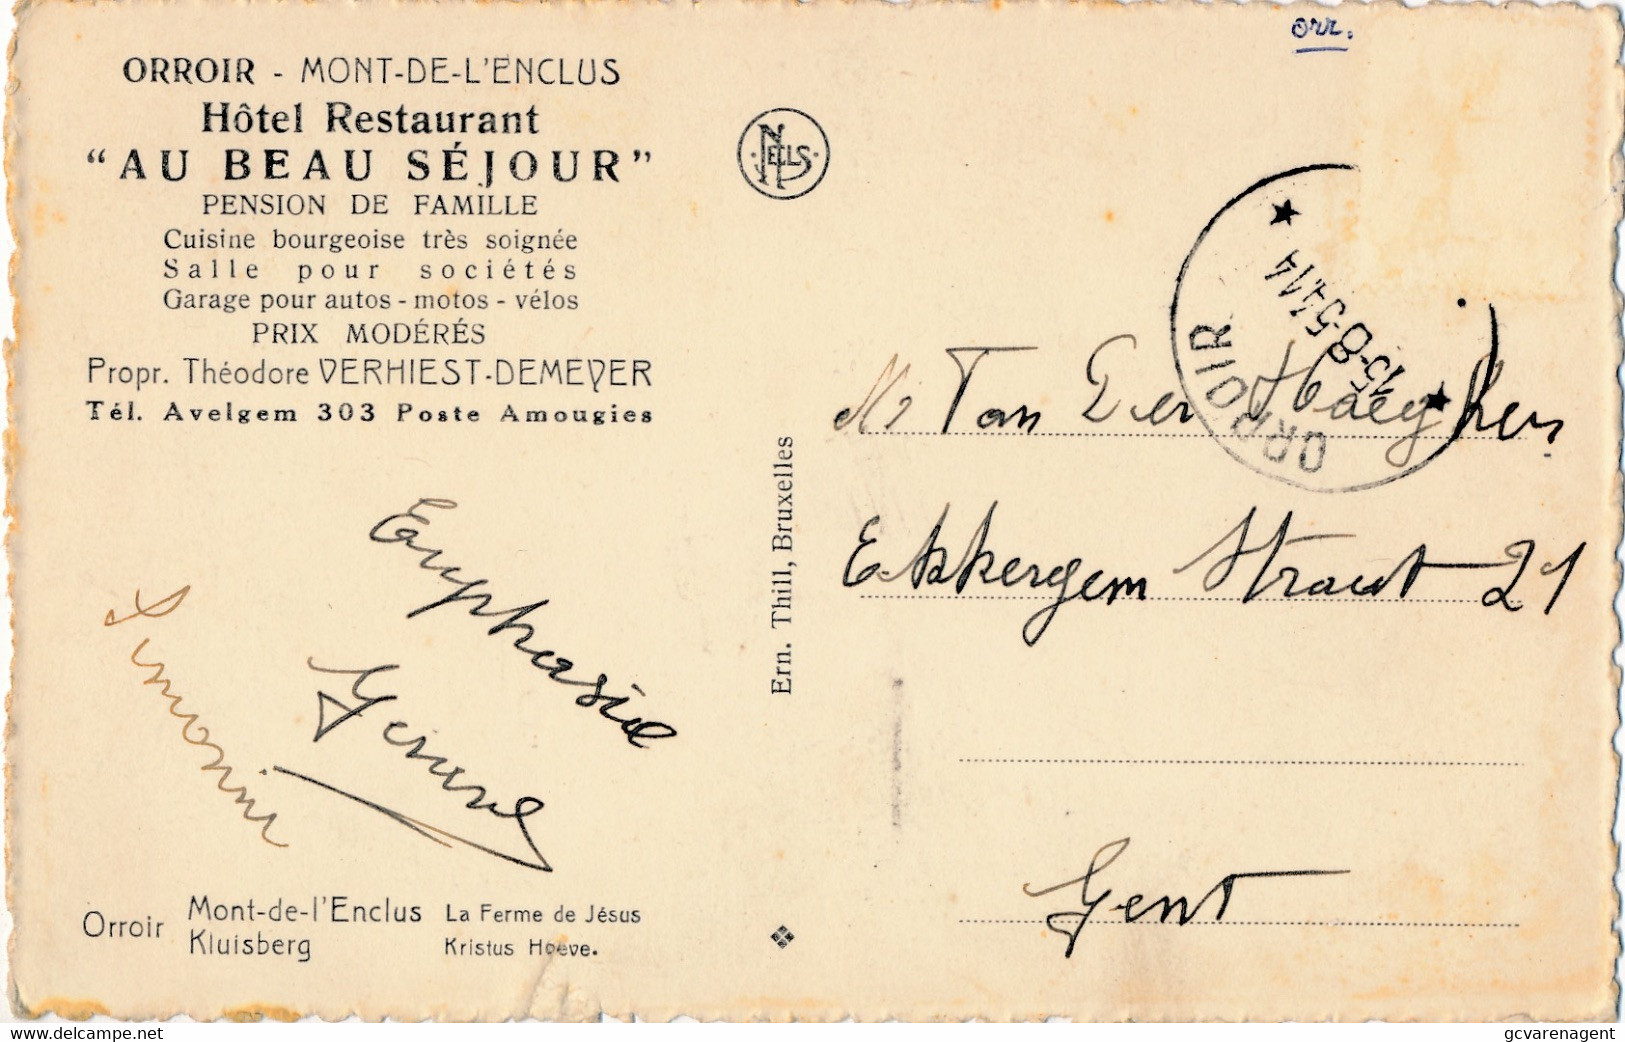 orr.
ORROIR - MONT-DE-L'ENCLUS
Hôtel Restaurant
"AU BEAU SÉJOUR"
PENSION DE FAMILLE
Cuisine bourgeoise très soignée
Salle pour sociétés
Garage pour autos - motos - vélos
PRIX MODÉRÉS
Propr. Théodore VERHIEST-DEMEYER
Tél. Avelgem 303 Poste Amougies
NELS
Ern. Thill, Bruxelles
ORROIR
15-8-54 14
Mr Van Der Haeghen
Ekkergem Straat 21
Gent
Simonine
Orroir
Mont-de-l'Enclus
Kluisberg
La Ferme de Jésus
Kristus Hoeve.
delcampe.net
gcvarenagent